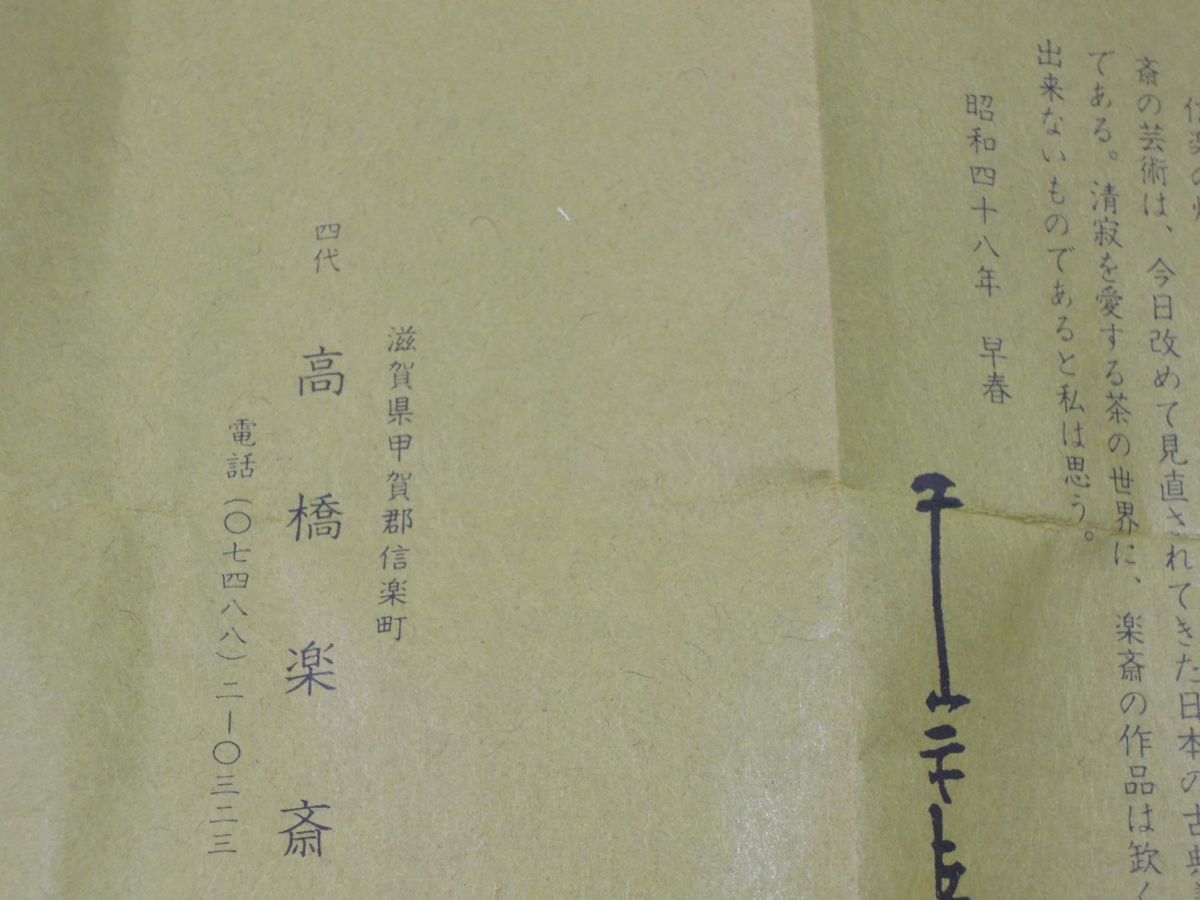 斎の芸術は、今日改めて見直されてきた日本の古典
である。清寂を愛する茶の世界に、楽斎の作品は欠く
出来ないものであると私は思う。
昭和四十八年 早春
滋賀県甲賀郡信楽町
四代 高橋楽斎
電話(〇七四八八)二―〇三二三